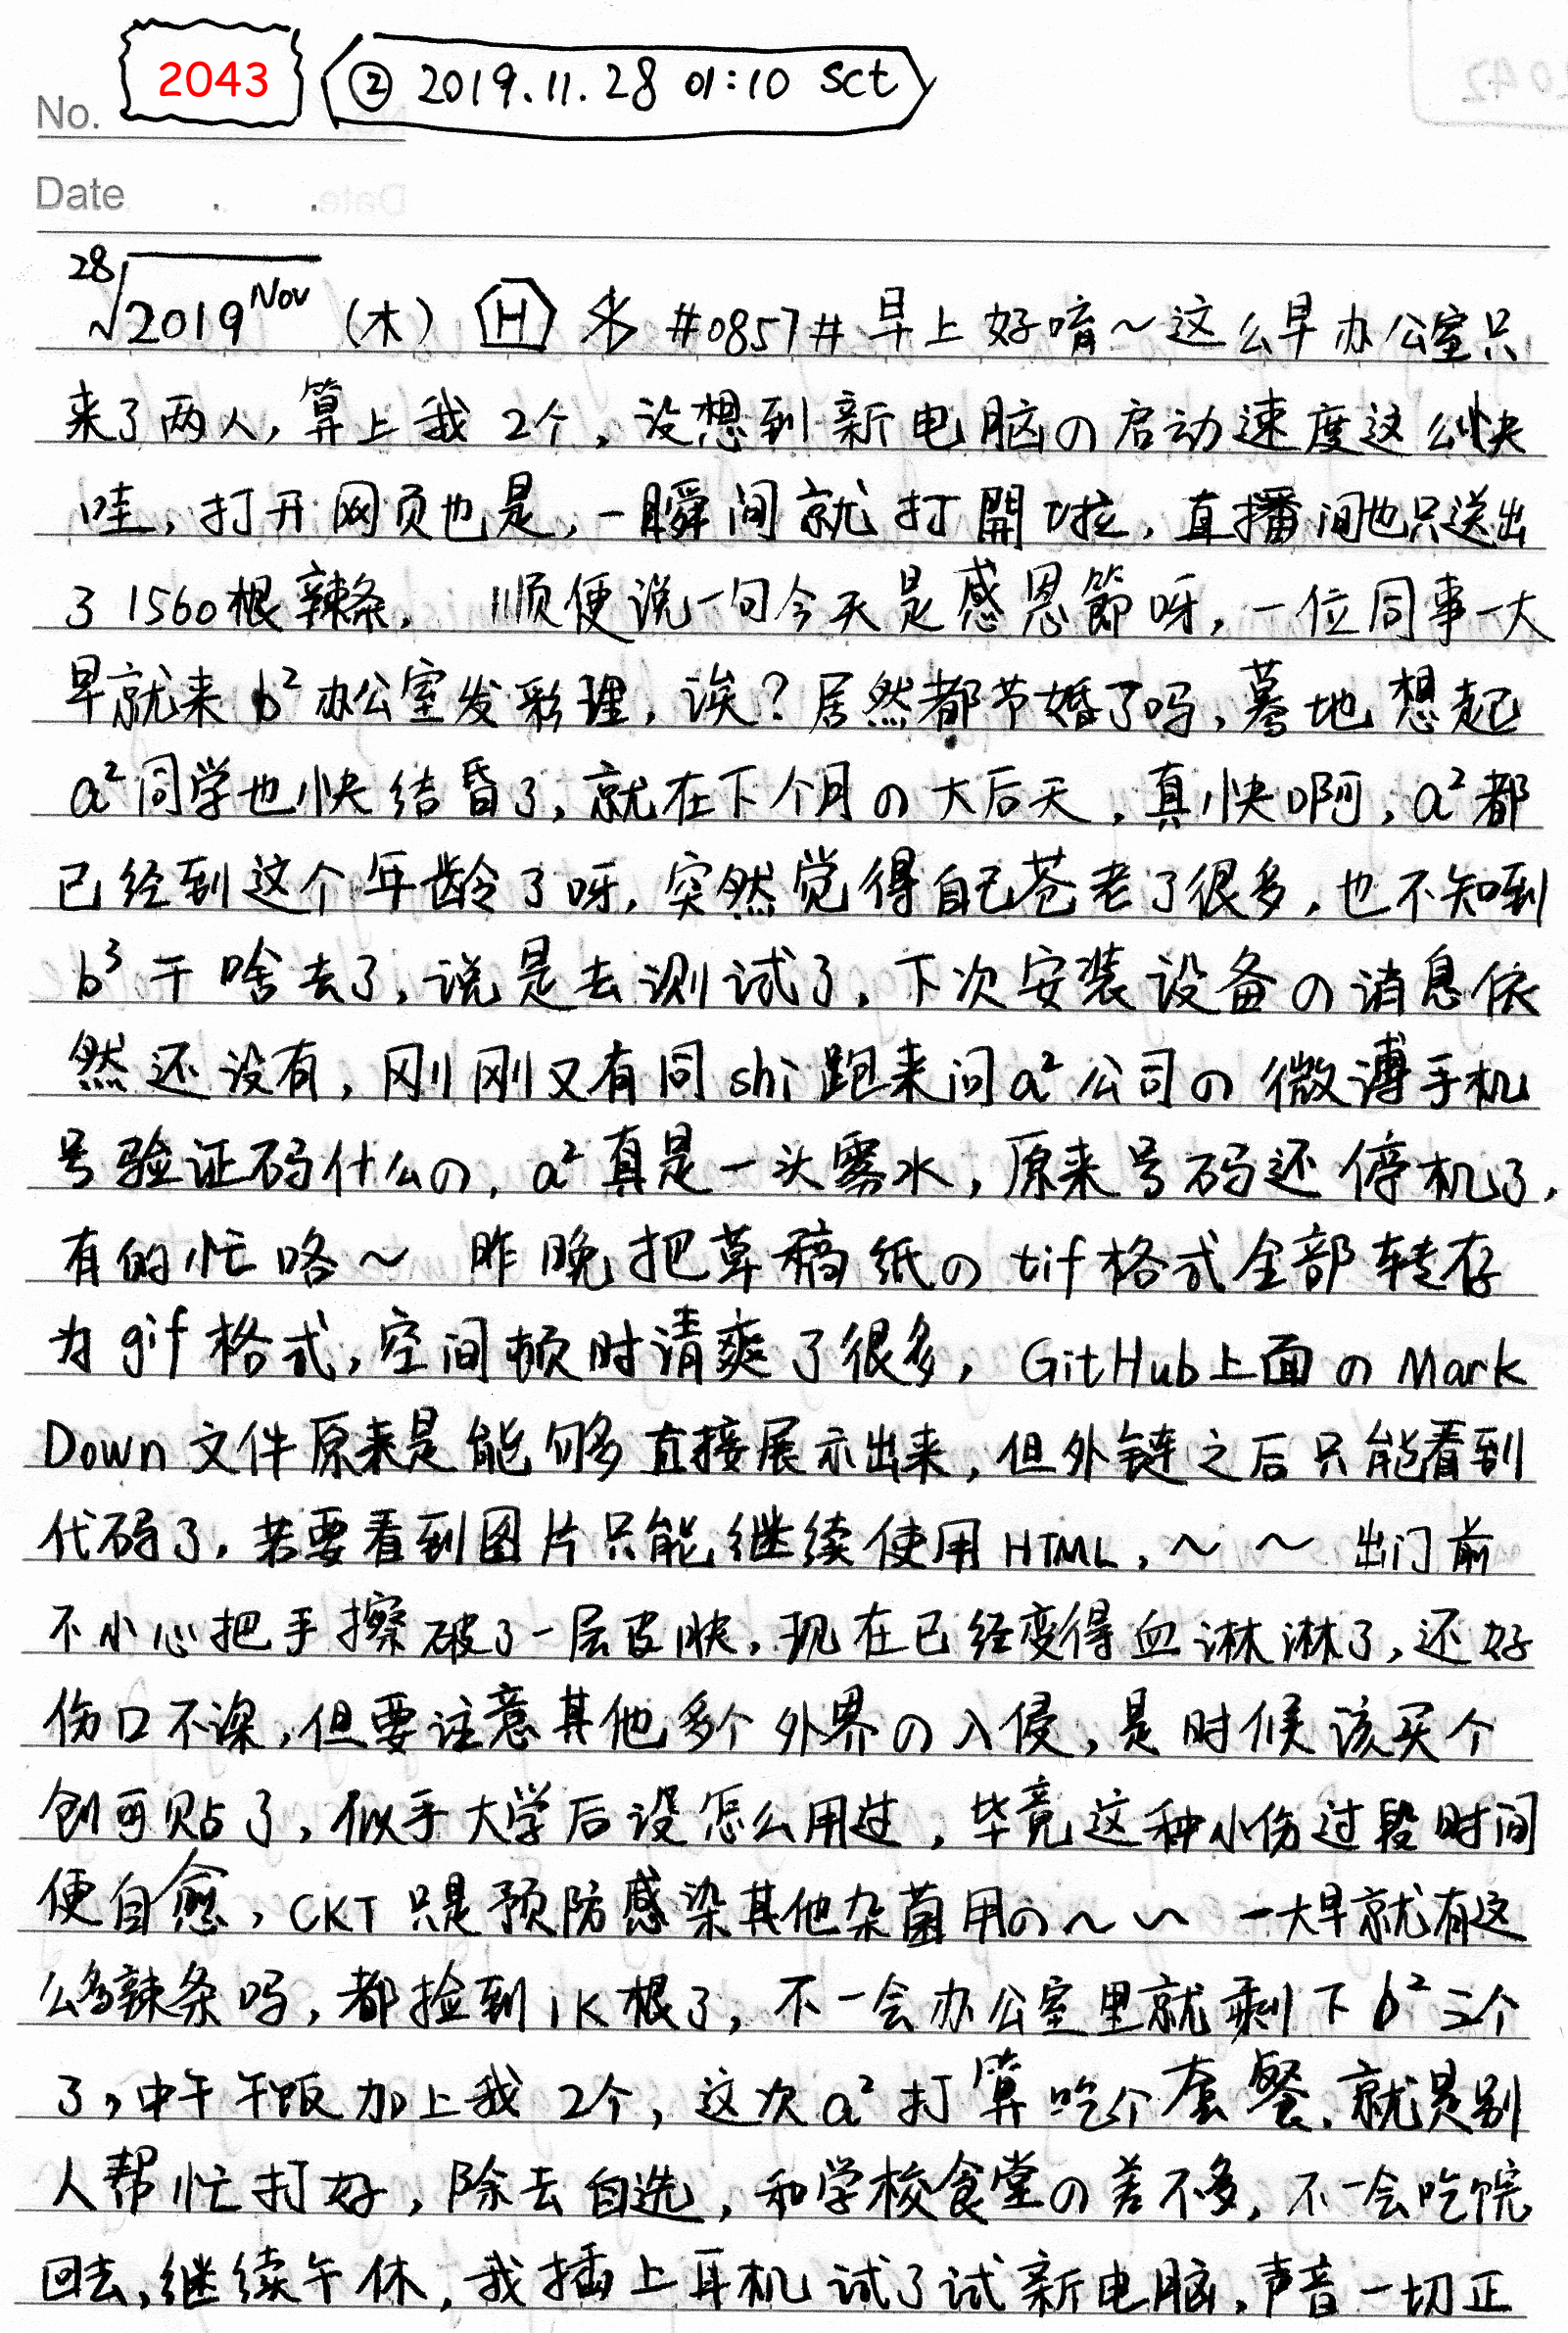 2043 ② 2019.11.28 01:10 Sct
No.
Date . .
28√2019Nov (木) H #0857# 早上好唷~这么早办公室只
来了两人,算上我2个,没想到新电脑の启动速度这么快
哇,打开网页也是,一瞬间就打開啦,直播间也只送出
了1560根辣条. 顺便说一句今天是感恩節呀,一位同事一大
早就来b²办公室发彩理,诶?居然都节婚了吗,蓦地想起
a²同学也快结昏了,就在下个月の大后天,真快啊,a²都
已经到这个年龄了呀,突然觉得自己苍老了很多,也不知到
b³干啥去了,说是去测试了,下次安装设备の消息依
然还没有,刚刚又有同shi跑来问a²公司の微溥手机
号验证码什么の,a²真是一头雾水,原来号码还停机了,
有的忙咯~ 昨晚把草稿纸のtif格式全部转存
为gif格式,空间顿时清爽了很多,GitHub上面のMark
Down文件原来是能够直接展示出来,但外链之后只能看到
代码了,若要看到图片只能继续使用HTML,~ ~ 出门前
不小心把手擦破了一层皮肤,现在已经变得血淋淋了,还好
伤口不深,但要注意其他多个外界の入侵,是时候该买个
创可贴了,似乎大学后没怎么用过,毕竟这种小伤过段时间
便自愈,CKT只是预防感染其他杂菌用の~~ 一大早就有这
么多辣条吗,都捡到1K根了,不一会办公室里就剩下b²三个
了,中午干饭加上我2个,这次a²打算吃个套餐,就是别
人帮忙打好,除去自选,和学校食堂の差不多,不一会吃皖
回去,继续午休,我插上耳机试了试新电脑,声音一切正